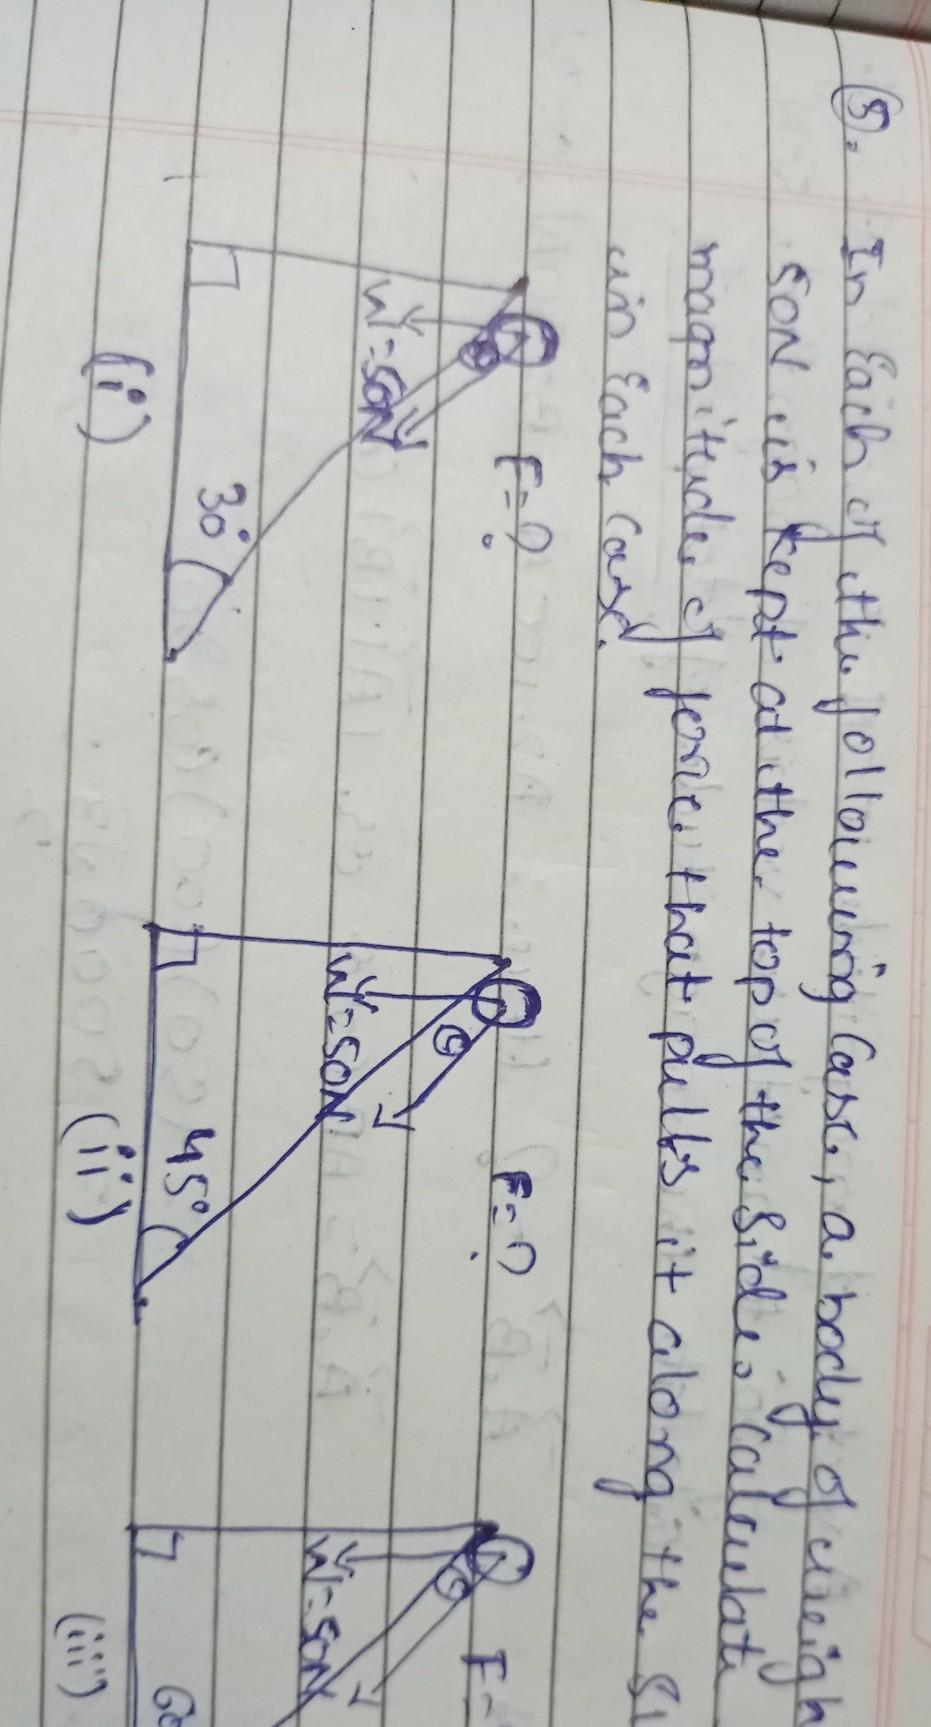 5. In Each of the following case, a body of weigh
50N is kept at the top of the side. Calculate
magnitude of force that pulls it along the
in Each Case.
F=? F=? F=
θ θ θ
W=50N W=50N W=50N
30° 45° 60
(i) (ii) (iii)